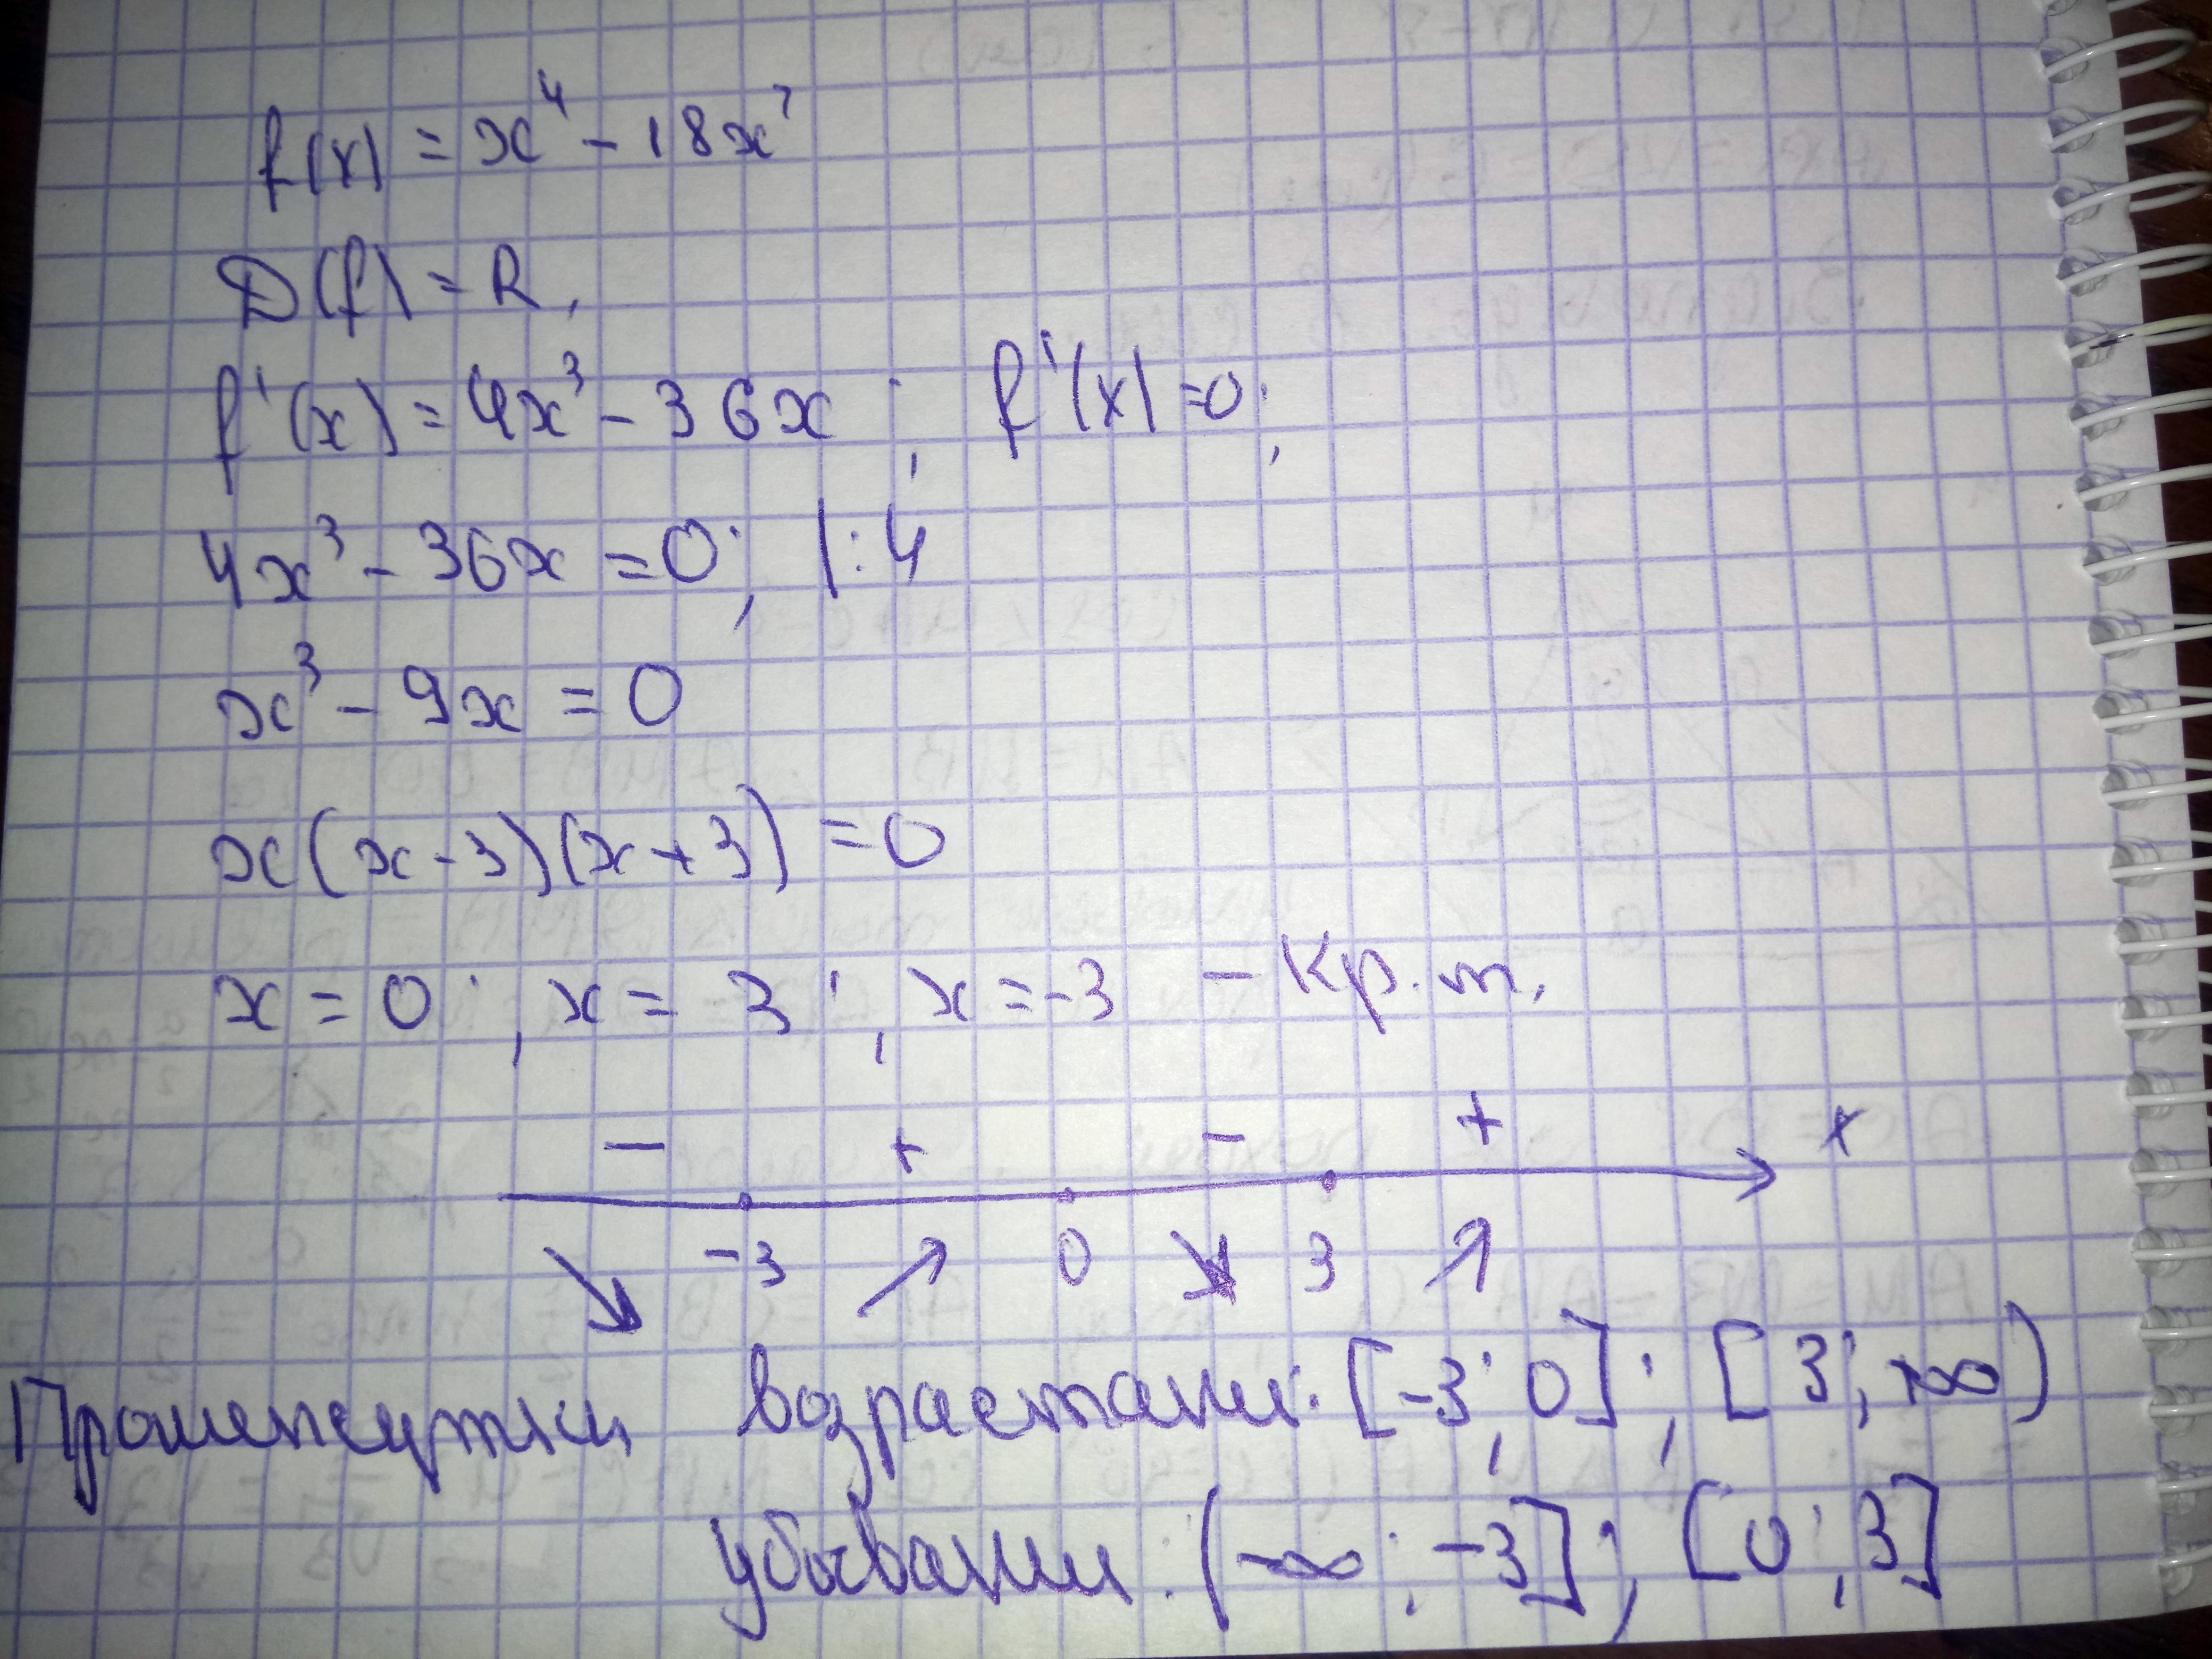 f(x) = x⁴ - 18x²
D(f) = R,
f'(x) = 4x³ - 36x ; f'(x) = 0;
4x³ - 36x = 0; | : 4
x³ - 9x = 0
x(x-3)(x+3) = 0
x = 0; x = 3; x = -3 - кр. т.
- + - + x
-3 0 3
Промежутки возрастани: [-3; 0]; [3; +∞)
убывани: (-∞; -3]; [0; 3]